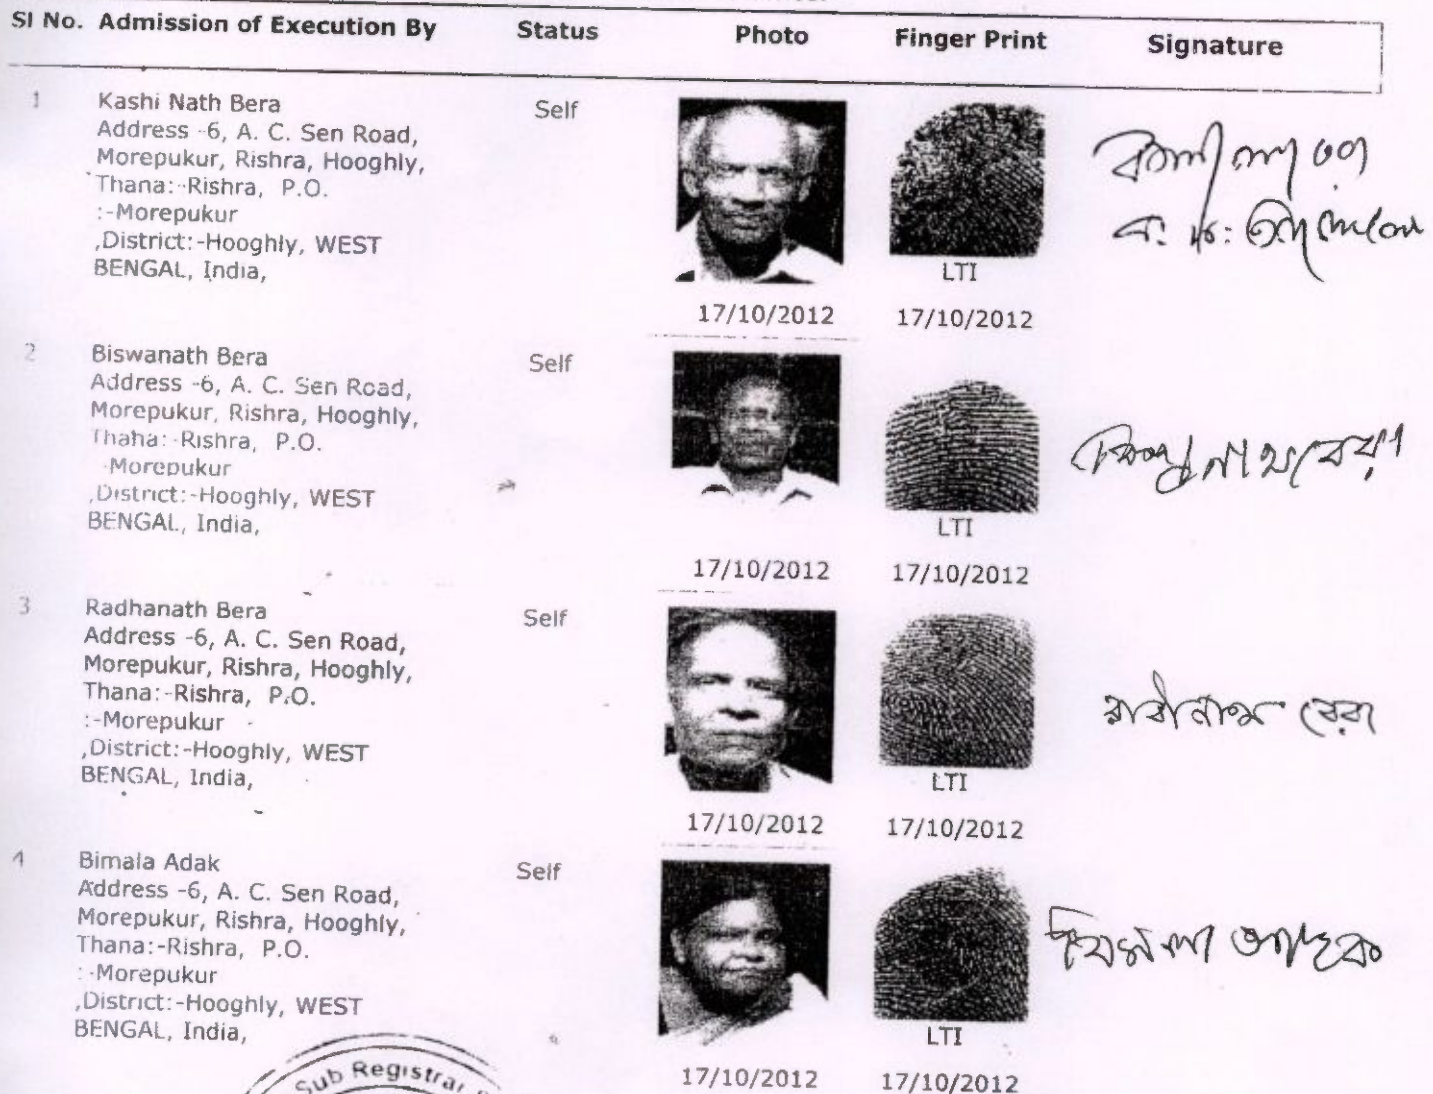 Sl No. Admission of Execution By Status Photo Finger Print Signature
1 Kashi Nath Bera Self
Address -6, A. C. Sen Road,
Morepukur, Rishra, Hooghly,
Thana:-Rishra, P.O.
:-Morepukur
,District:-Hooghly, WEST
BENGAL, India,
LTI
17/10/2012 17/10/2012
2 Biswanath Bera Self
Address -6, A. C. Sen Road,
Morepukur, Rishra, Hooghly,
Thana:-Rishra, P.O.
:-Morepukur
,District:-Hooghly, WEST
BENGAL, India,
বিশ্বনাথ বেরা
LTI
17/10/2012 17/10/2012
3 Radhanath Bera Self
Address -6, A. C. Sen Road,
Morepukur, Rishra, Hooghly,
Thana:-Rishra, P.O.
:-Morepukur
,District:-Hooghly, WEST
BENGAL, India,
রাধানাথ বেরা
LTI
17/10/2012 17/10/2012
4 Bimala Adak Self
Address -6, A. C. Sen Road,
Morepukur, Rishra, Hooghly,
Thana:-Rishra, P.O.
:-Morepukur
,District:-Hooghly, WEST
BENGAL, India,
বিমলা আদক
LTI
17/10/2012 17/10/2012
Sub Registrar